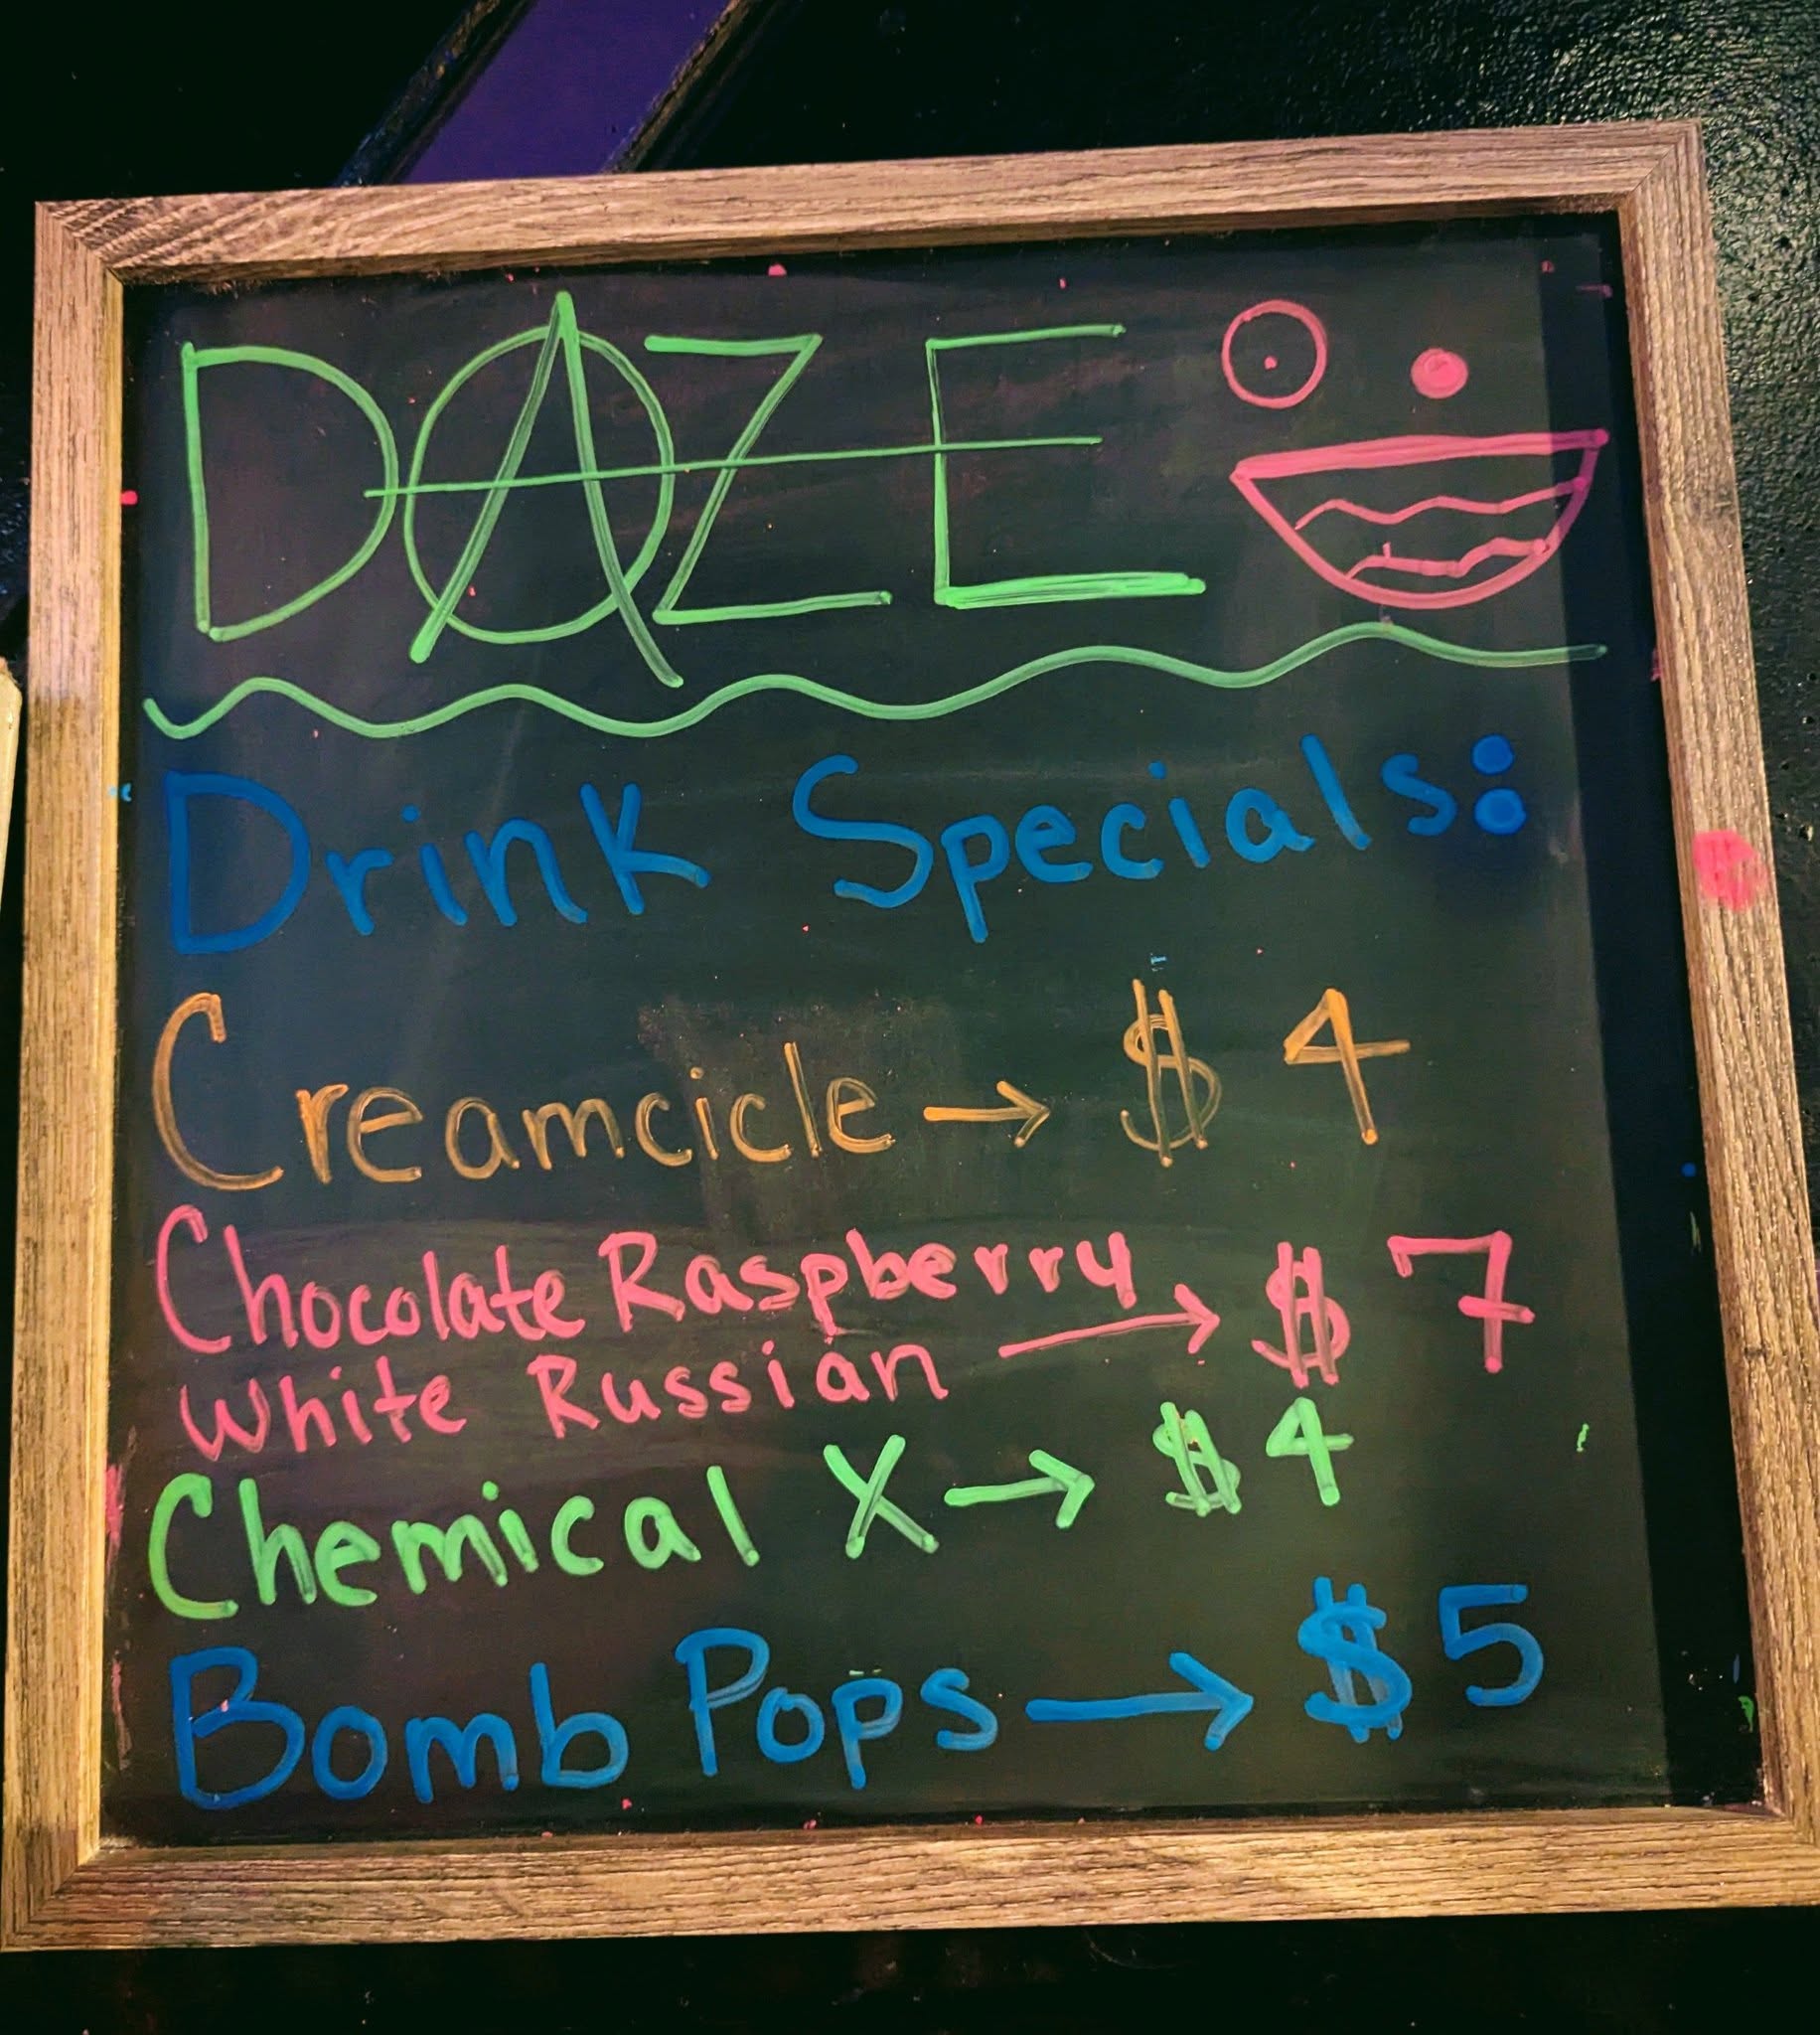 DAZE
Drink Specials:
Creamcicle → $ 4
Chocolate Raspberry
White Russian → $ 7
Chemical X → $ 4
Bomb Pops → $ 5